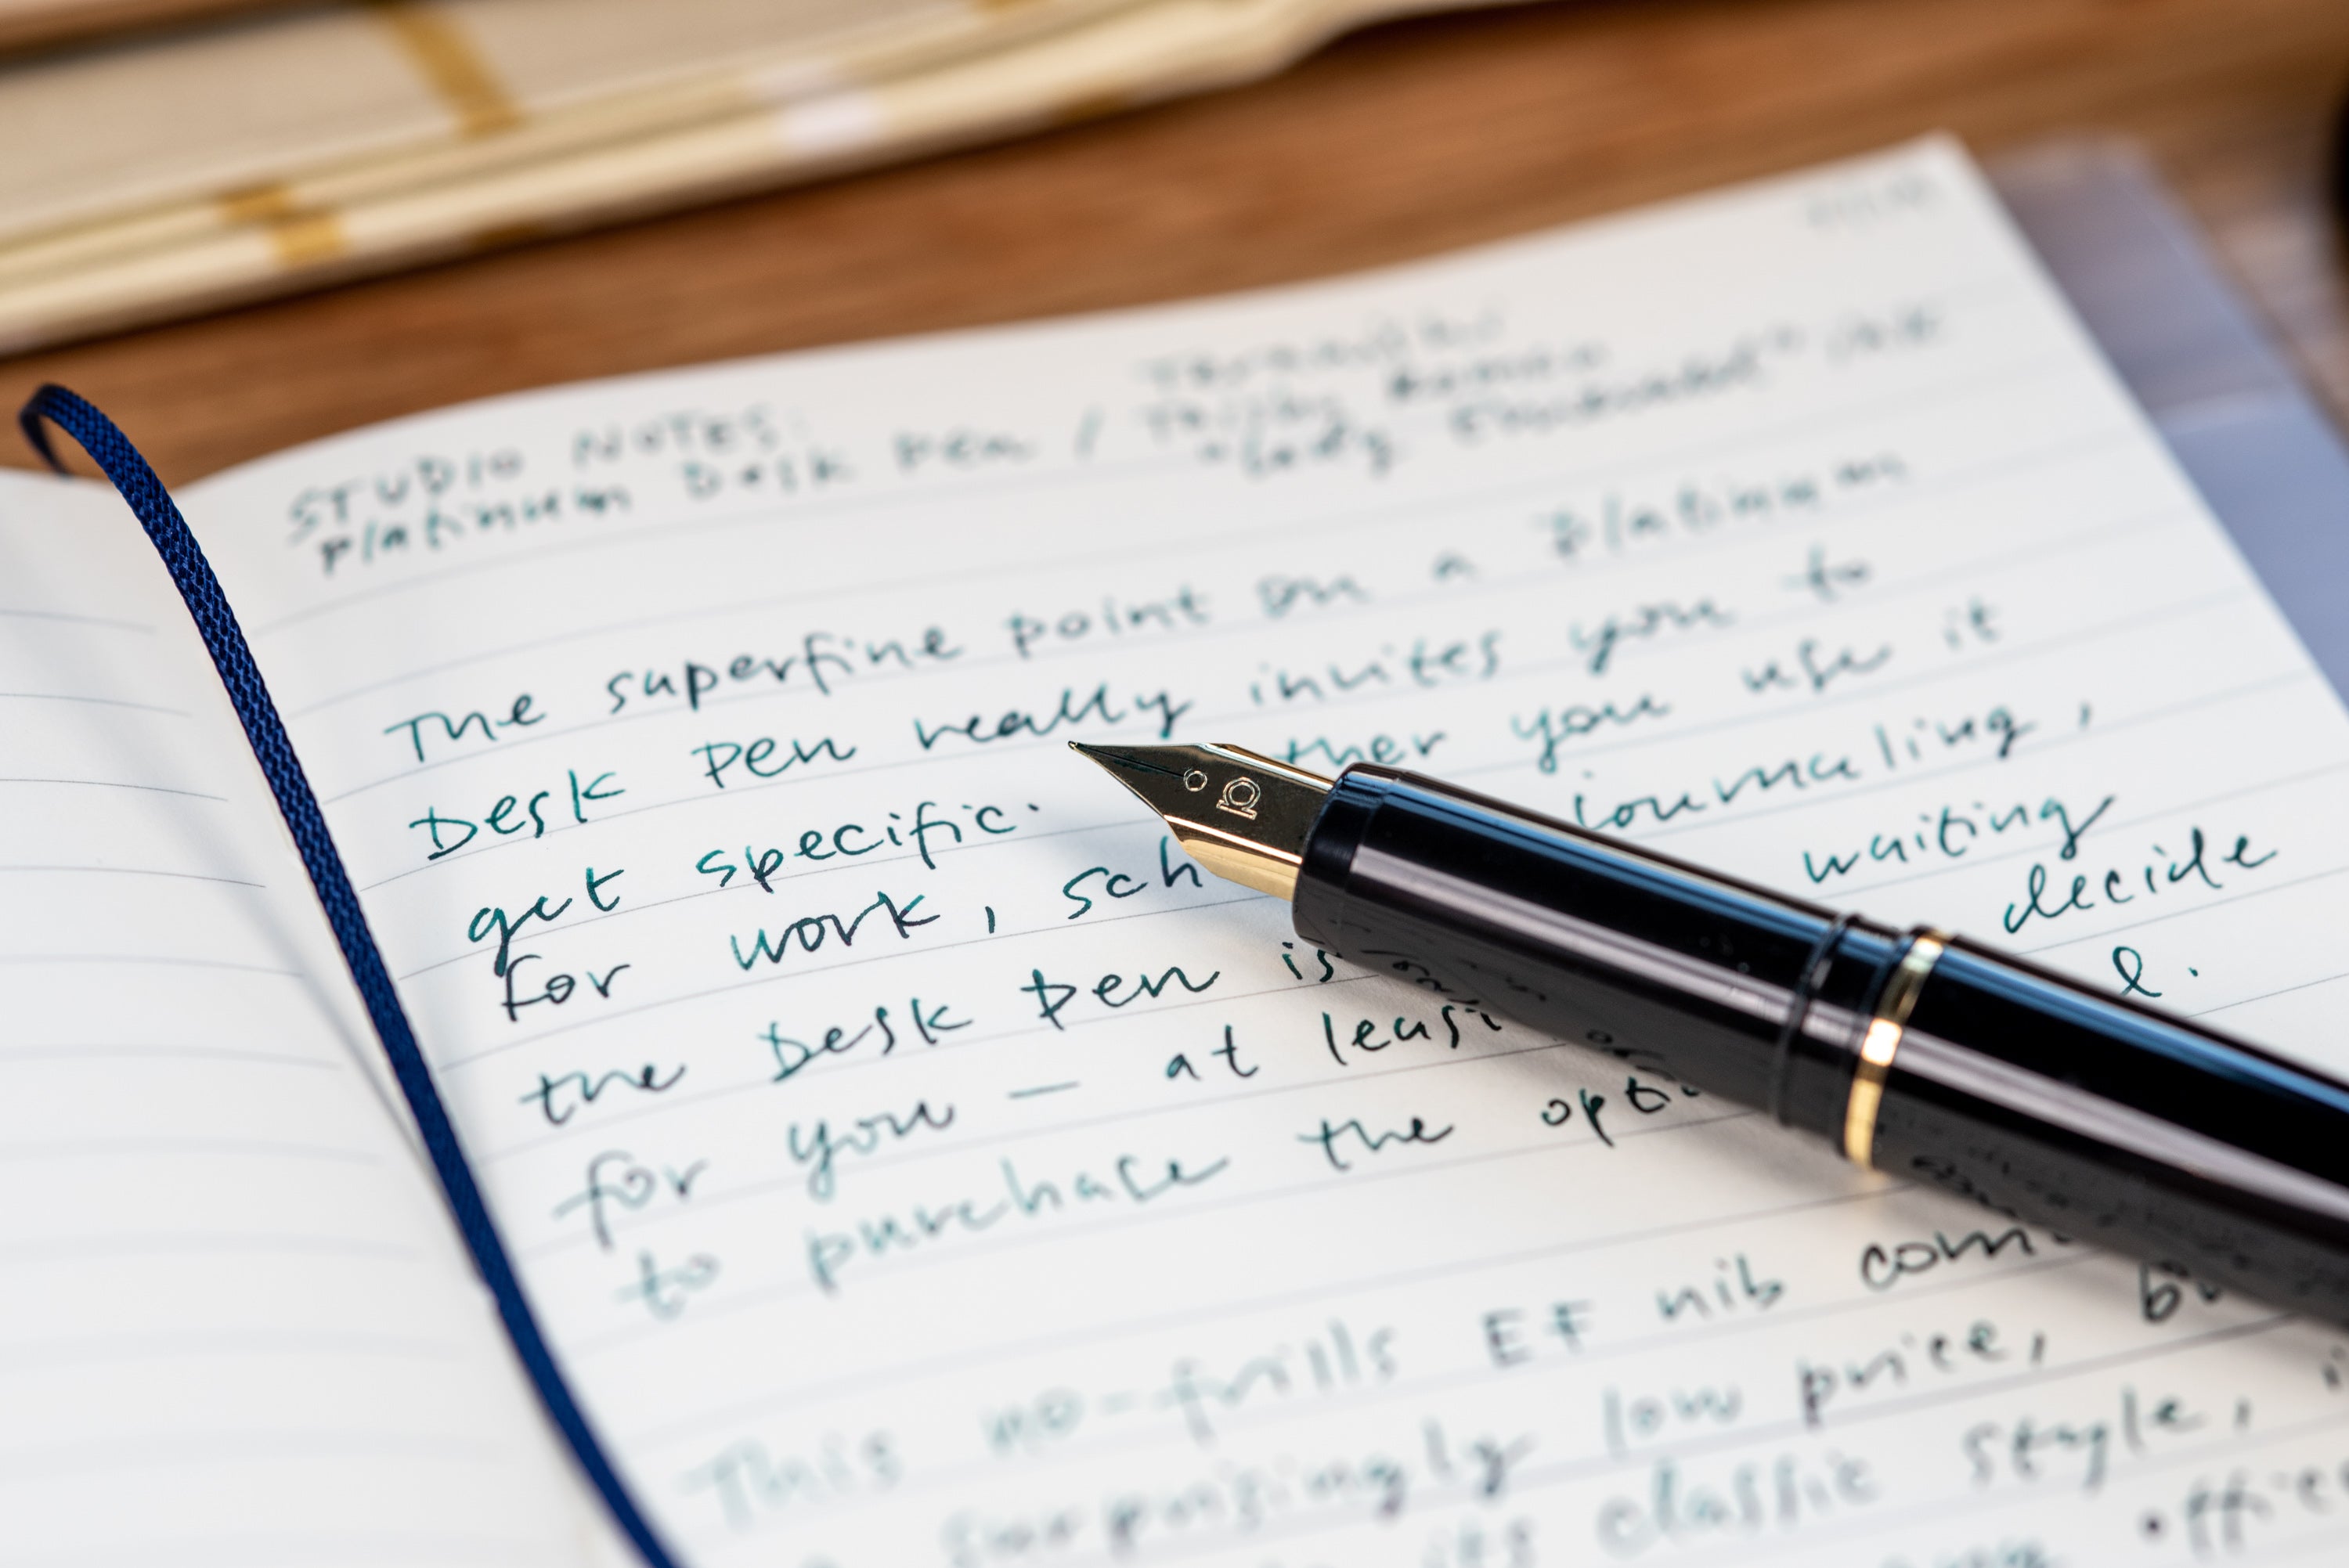 STUDIO NOTES:
Platinum Desk Pen /
"Lady Emerald" ink
The superfine point on a Platinum
Desk Pen really invites you to
get specific. ther you use it
for work, sch journaling,
the Desk Pen is waiting
for you — at least decide
to purchase the opti l.
This no-frills EF nib com
surprisingly low price, bu
its classic style, i
office